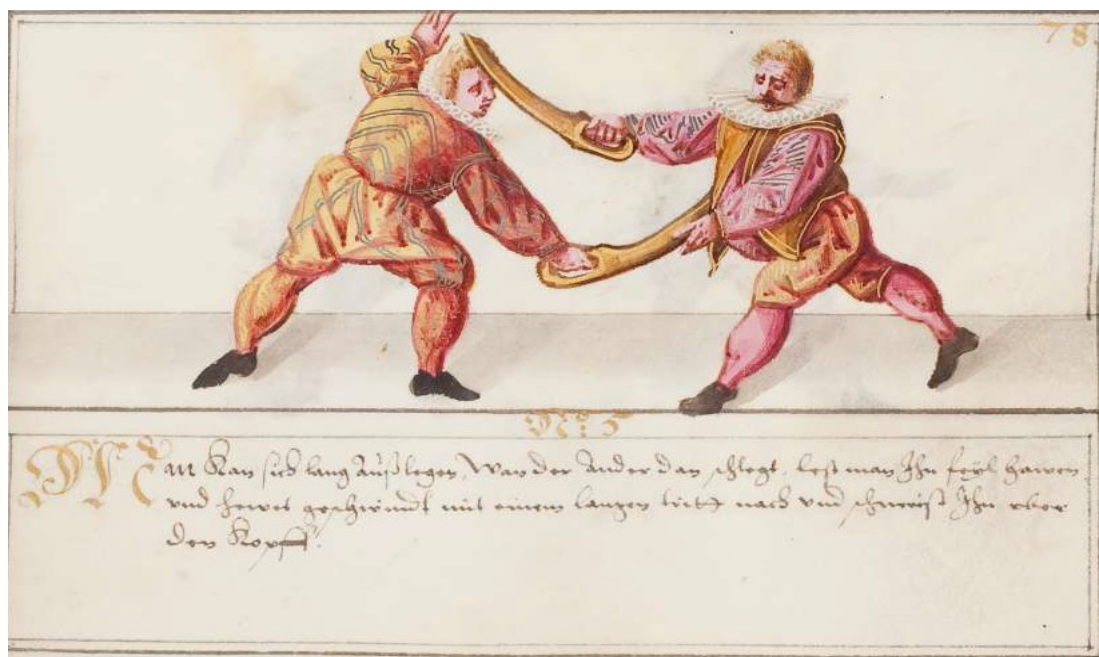 78.
No: 5
Man Kan sich lang Außlegen, Wan der Ander dan schlegt, lest man Ihn feyl hawen
vnd hewet geschwindt mit einem langen tritt nach vnd schmeist Ihn vber
den Kopff.